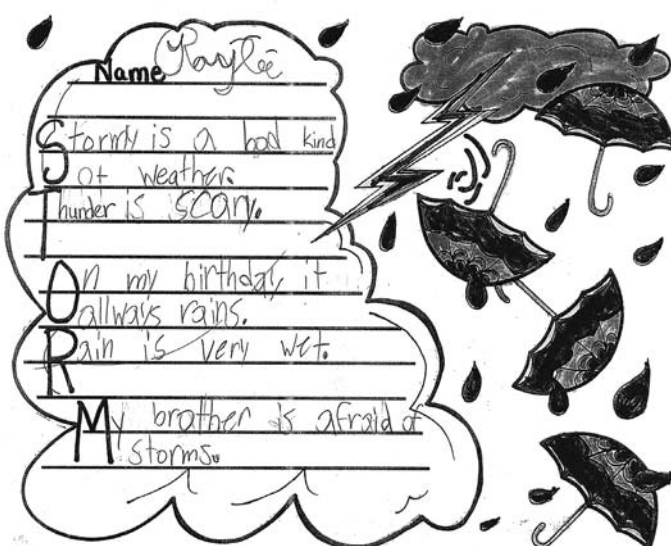 Name Kaylie
Stormy is a bad kind
of weather.
Thunder is scary.
On my birthday it
allways rains.
Rain is very wet.
My brother is afraid of
storms.